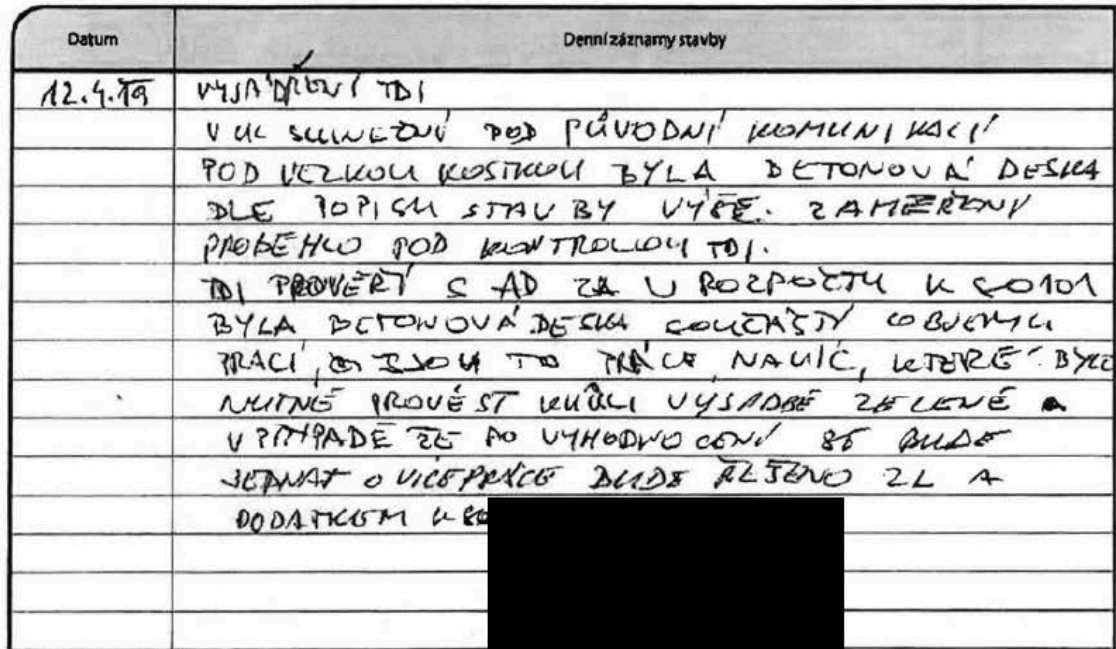 Datum Denní záznamy stavby
12.4.19 VYJÁDŘENÍ TDI
V UL SLUNEČNÍ POD PŮVODNÍ KOMUNIKACÍ
POD VELKOU KOSTKOU BYLA BETONOVÁ DESKA
DLE POPISU STAVBY VÝŠE. ZAMĚŘENÍ
PROBĚHLO POD KONTROLOU TDI.
TDI PROVĚŘÍ S AD ZA V ROZPOČTU K SO101
BYLA BETONOVÁ DESKA SOUČÁSTÍ OBJEMU
PRACÍ, JSOU TO PRÁCE NAVÍC, KTERÉ BYLO
NUTNÉ PROVÉST KVŮLI VÝSADBĚ ZELENĚ A
V PŘÍPADĚ ŽE PO VYHODNOCENÍ SE BUDE
JEDNAT O VÍCEPRÁCE BUDE ŘEŠENO ZL A
DODATKEM K